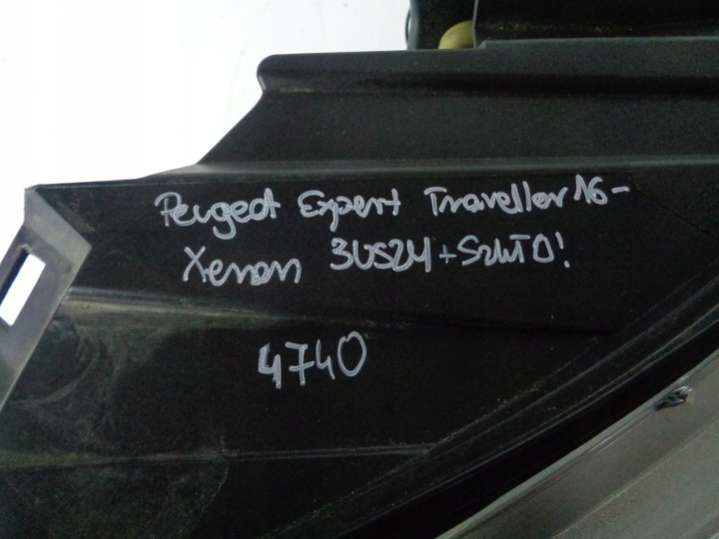 Peugeot Expert Traveller 16-
Xenon 3USZY+SZKŁO!
4740